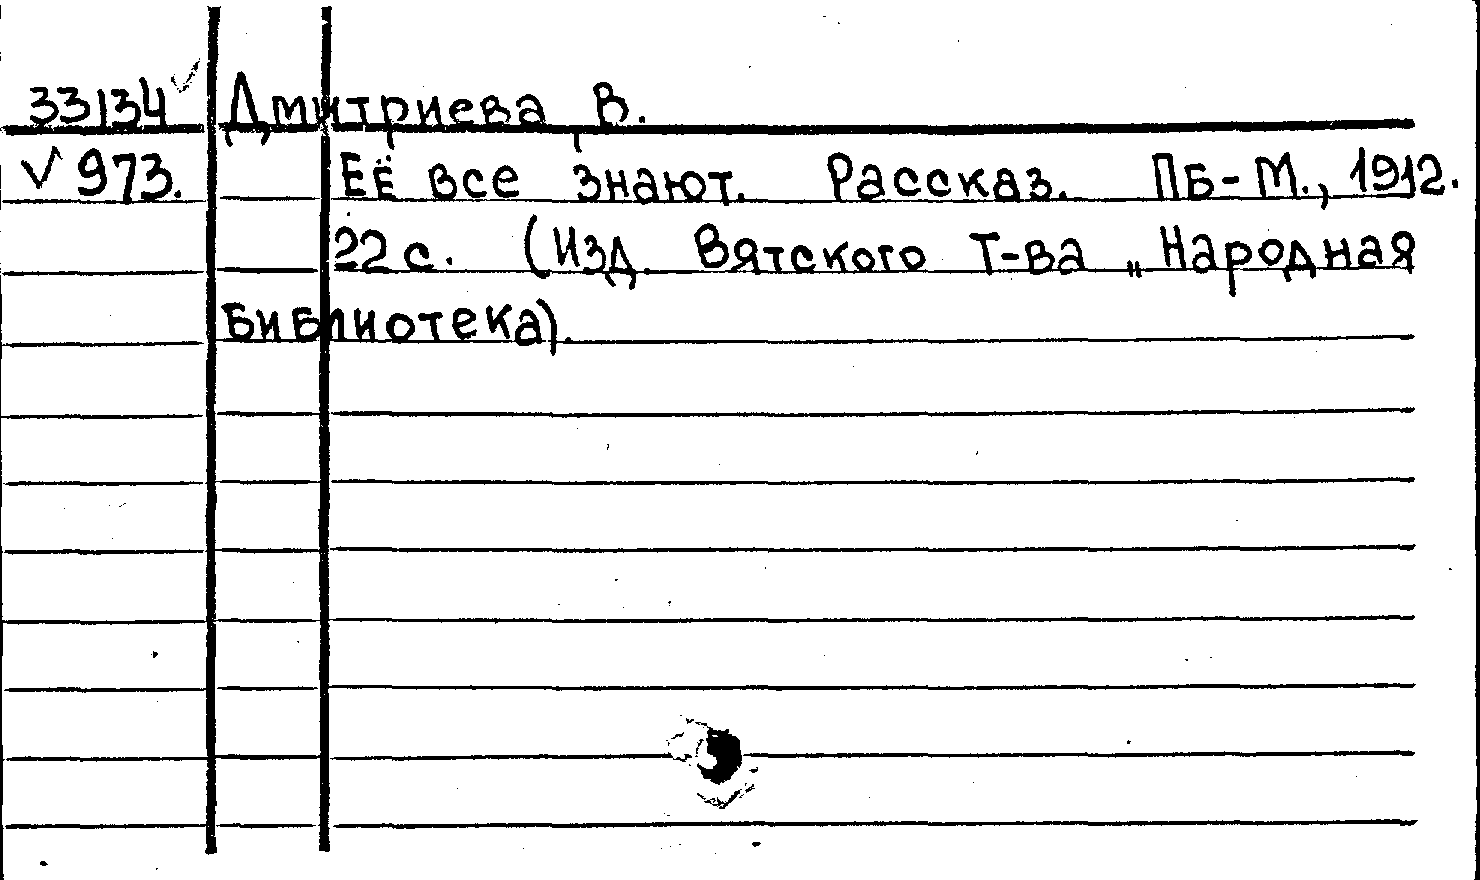 33134 ✓ Дмитриева, В.
✓ 973. Её все знают. Рассказ. ПБ-М., 1912.
22 с. (Изд. Вятского Т-ва „Народная
Библиотека).